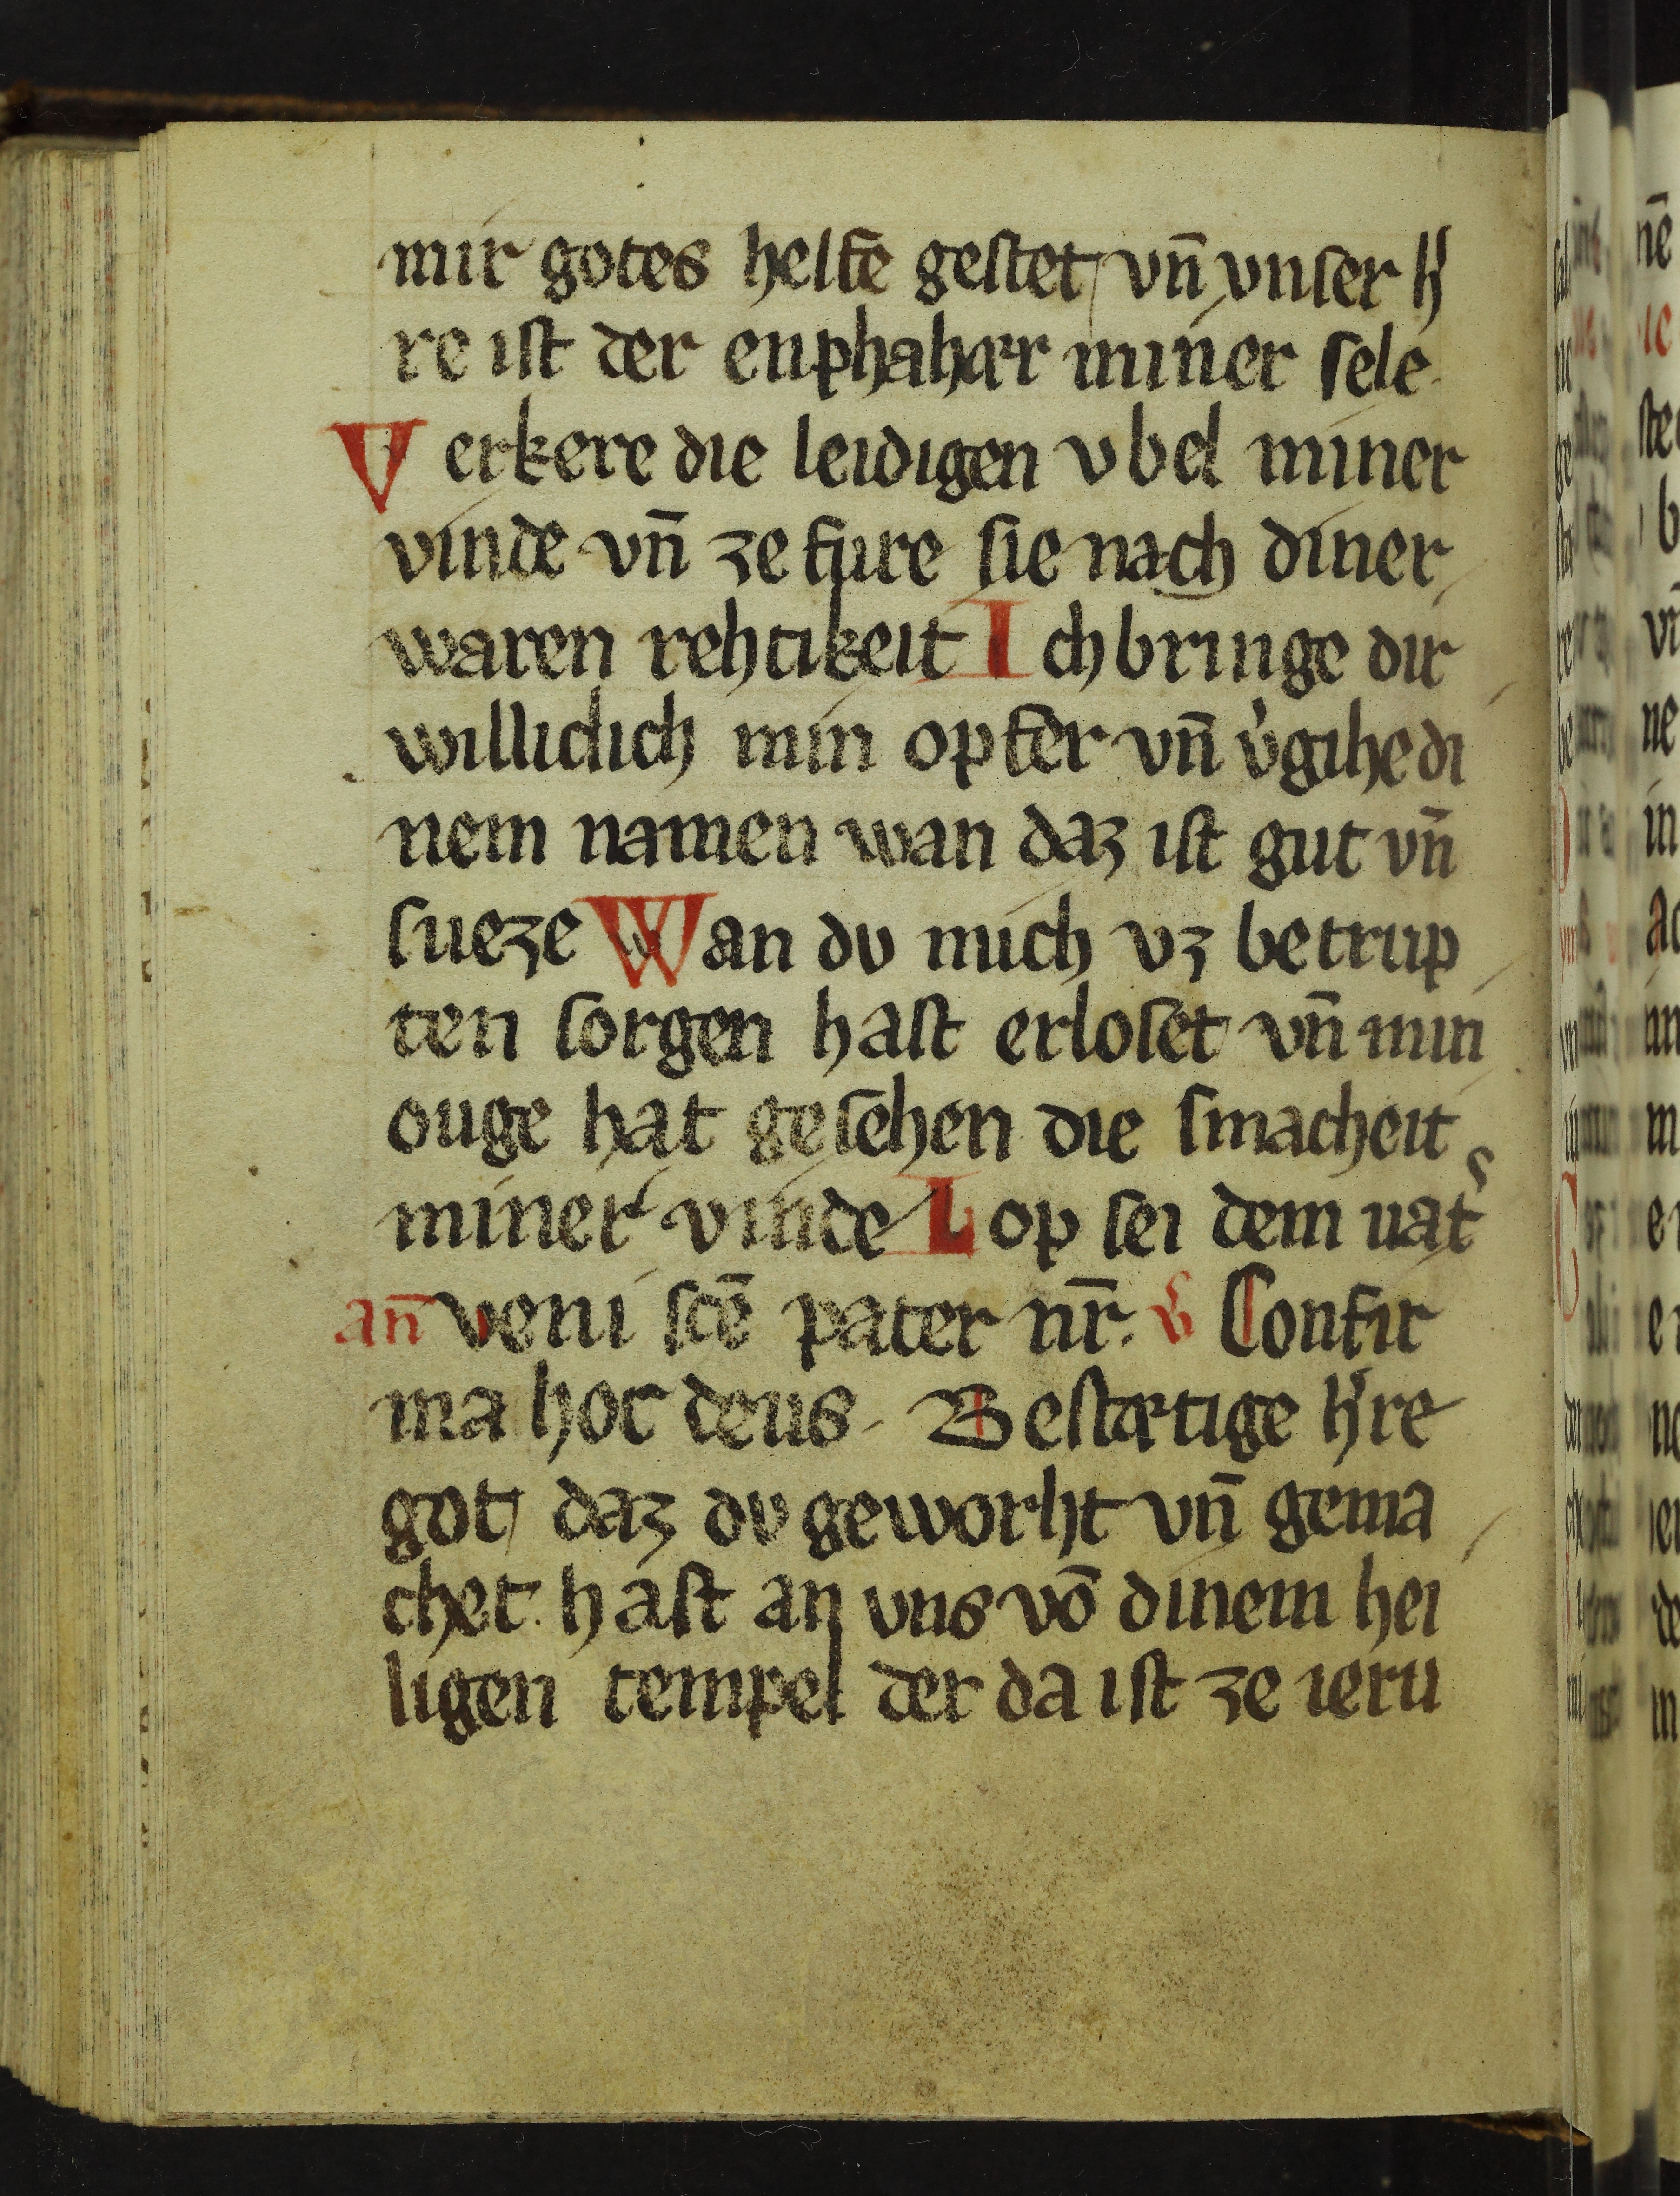 mir gotes helfe gestet vn̄ vnser h̓
re ist der enphahær miner sele
Verkere die leidigen vbel miner
vinde vn̄ zefure sie nach diner
waren rehtikeit Ich bringe dir
williclich min opfer vn̄ v̓gihe di
nem namen wan daz ist gut vn̄
sueze Wan dv mich vz betrup
ten sorgen hast erloset vn̄ min
ouge hat gesehen die smacheit
miner vinde Lop sei dem uat̓
an̄ veni sc̄e pater nr̄. v̓ Confir
ma hoc deus. Bestætige h̓re
got daz dv geworht vn̄ gema
chet hast an vns vō dinem hei
ligen tempel der da ist ze ieru